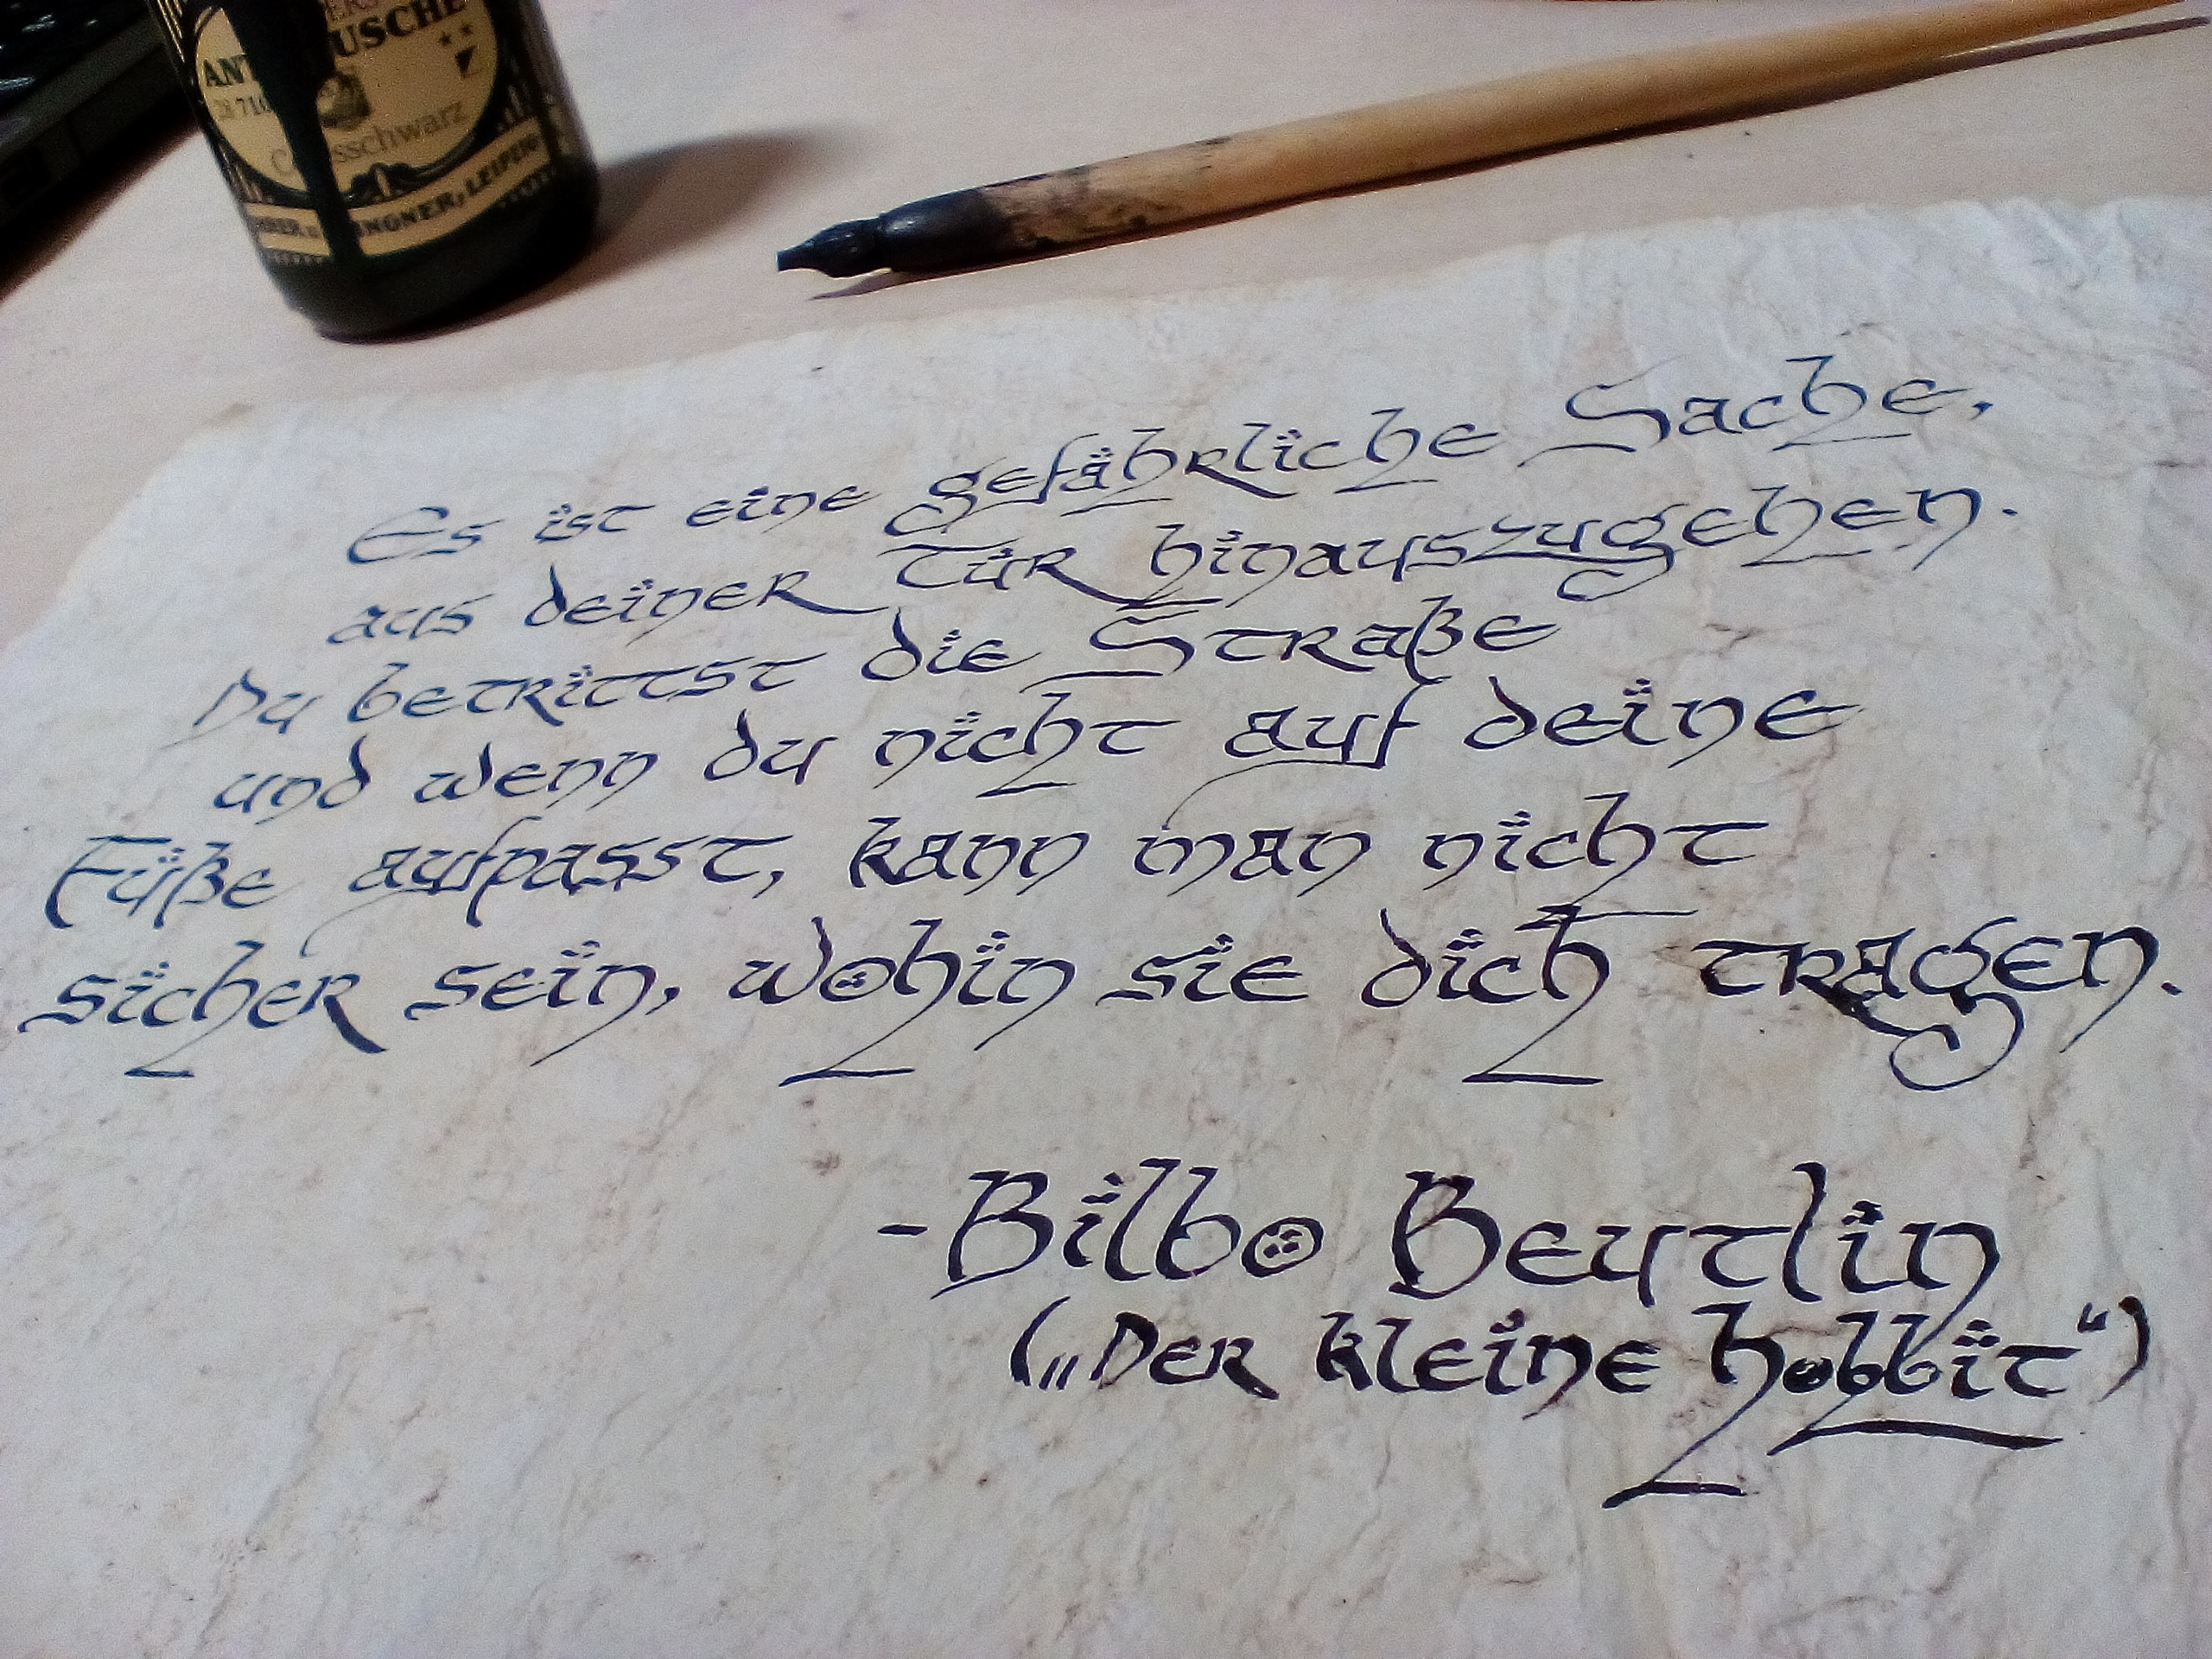 USCHE
ANT
schwarz
NGNER, LEIPZIG
Es ist eine gefährliche Sache,
aus deiner Tür hinauszugehen.
Du betrittst die Straße
und wenn du nicht auf deine
Füße aufpasst, kann man nicht
sicher sein, wohin sie dich tragen.
- Bilbo Beutlin
(„Der kleine hobbit“)